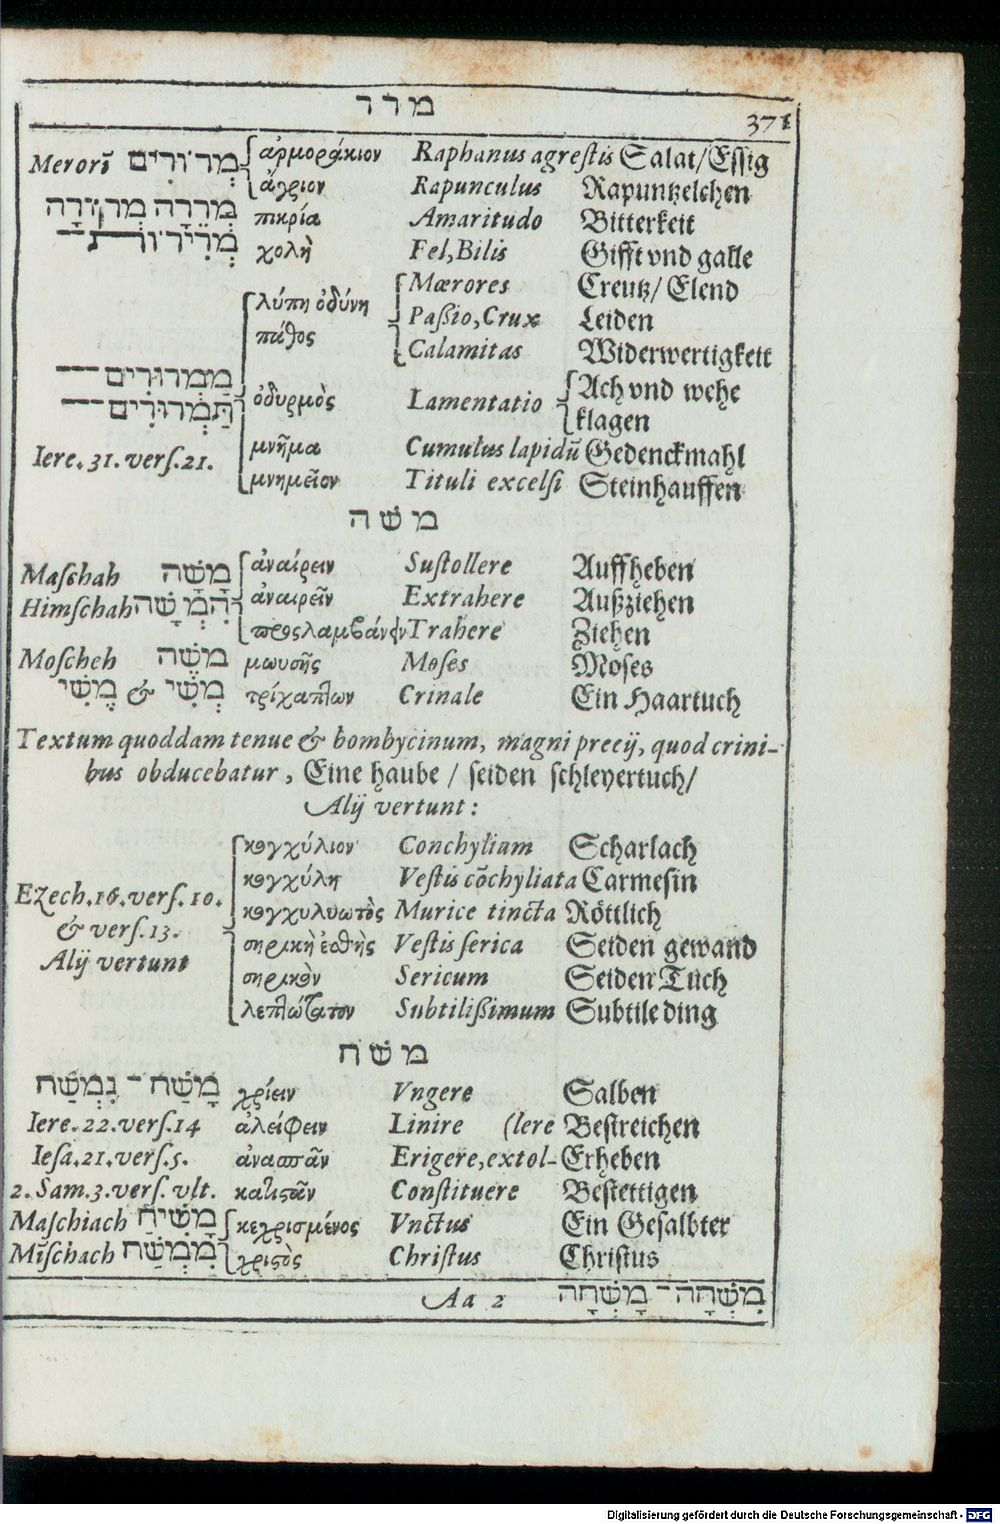 מרר
371
Merorĩ מְר־וֹרִים ἀρμοράκιον Raphanus agrestis Salat/Essig
ἄγριον Rapunculus Rapuntzelchen
πικρία Amaritudo Bitterkeit
χολὴ Fel, Bilis Gifft vnd galle
λύπη ὀδύνη Mærores Creutz/ Elend
πάθος Paßio, Crux Leiden
Calamitas Widerwertigkeit
מַמְּרוּרִים ὀδυρμὸς Lamentatio Ach vnd wehe
תַּמְרוּרִים klagen
μνῆμα Cumulus lapidũ Gedenckmahl
Iere. 31. vers. 21.
μνημεῖον Tituli excelsi Steinhauffen
משה
Maschah מָשָׁה ἀναίρειν Sustollere Auffheben
Himschah הִמְשָׁה ἀναιρεῖν Extrahere Außziehen
προςλαμβάνειν Trahere Ziehen
Moscheh מֹשֶׁה μωυσῆς Moses Moses
מְשִׁי & מֶשִׁי τρίχαπτων Crinale Ein Haartuch
Textum quoddam tenue & bombycinum, magni precij, quod crini-
bus obducebatur, Eine haube / seiden schleyertuch/
Alij vertunt:
κογχύλιον Conchyliam Scharlach
κογχύλη Vestis cõchyliata Carmesin
Ezech. 16. vers. 10.
κογχυλυωτὸς Murice tincta Röttlich
& vers. 13.
σηρικὴ ἐσθὴς Vestis serica Seiden gewand
Alij vertunt
σηρικὸν Sericum Seiden Tuch
Subtilißimum Subtile ding
משח
מָשַׁח־ נִמְשַׁח χρίειν Vngere Salben
Iere. 22. vers. 14 ἀλείφειν Linire (lere Bestreichen
Iesa. 21. vers. 5. ἀνασπᾶν Erigere, extol- Erheben
2. Sam. 3. vers. vlt. καθιστᾶν Constituere Bestettigen
Maschiach מָשִׁיחַ κεχρισμένος Vnctus Ein Gesalbter
Mĩschach מִמְשַׁח χριστὸς Christus Christus
Aa 2 מִשְׁחָה־ מָשְׁחָה
Digitalisierung gefördert durch die Deutsche Forschungsgemeinschaft - DFG